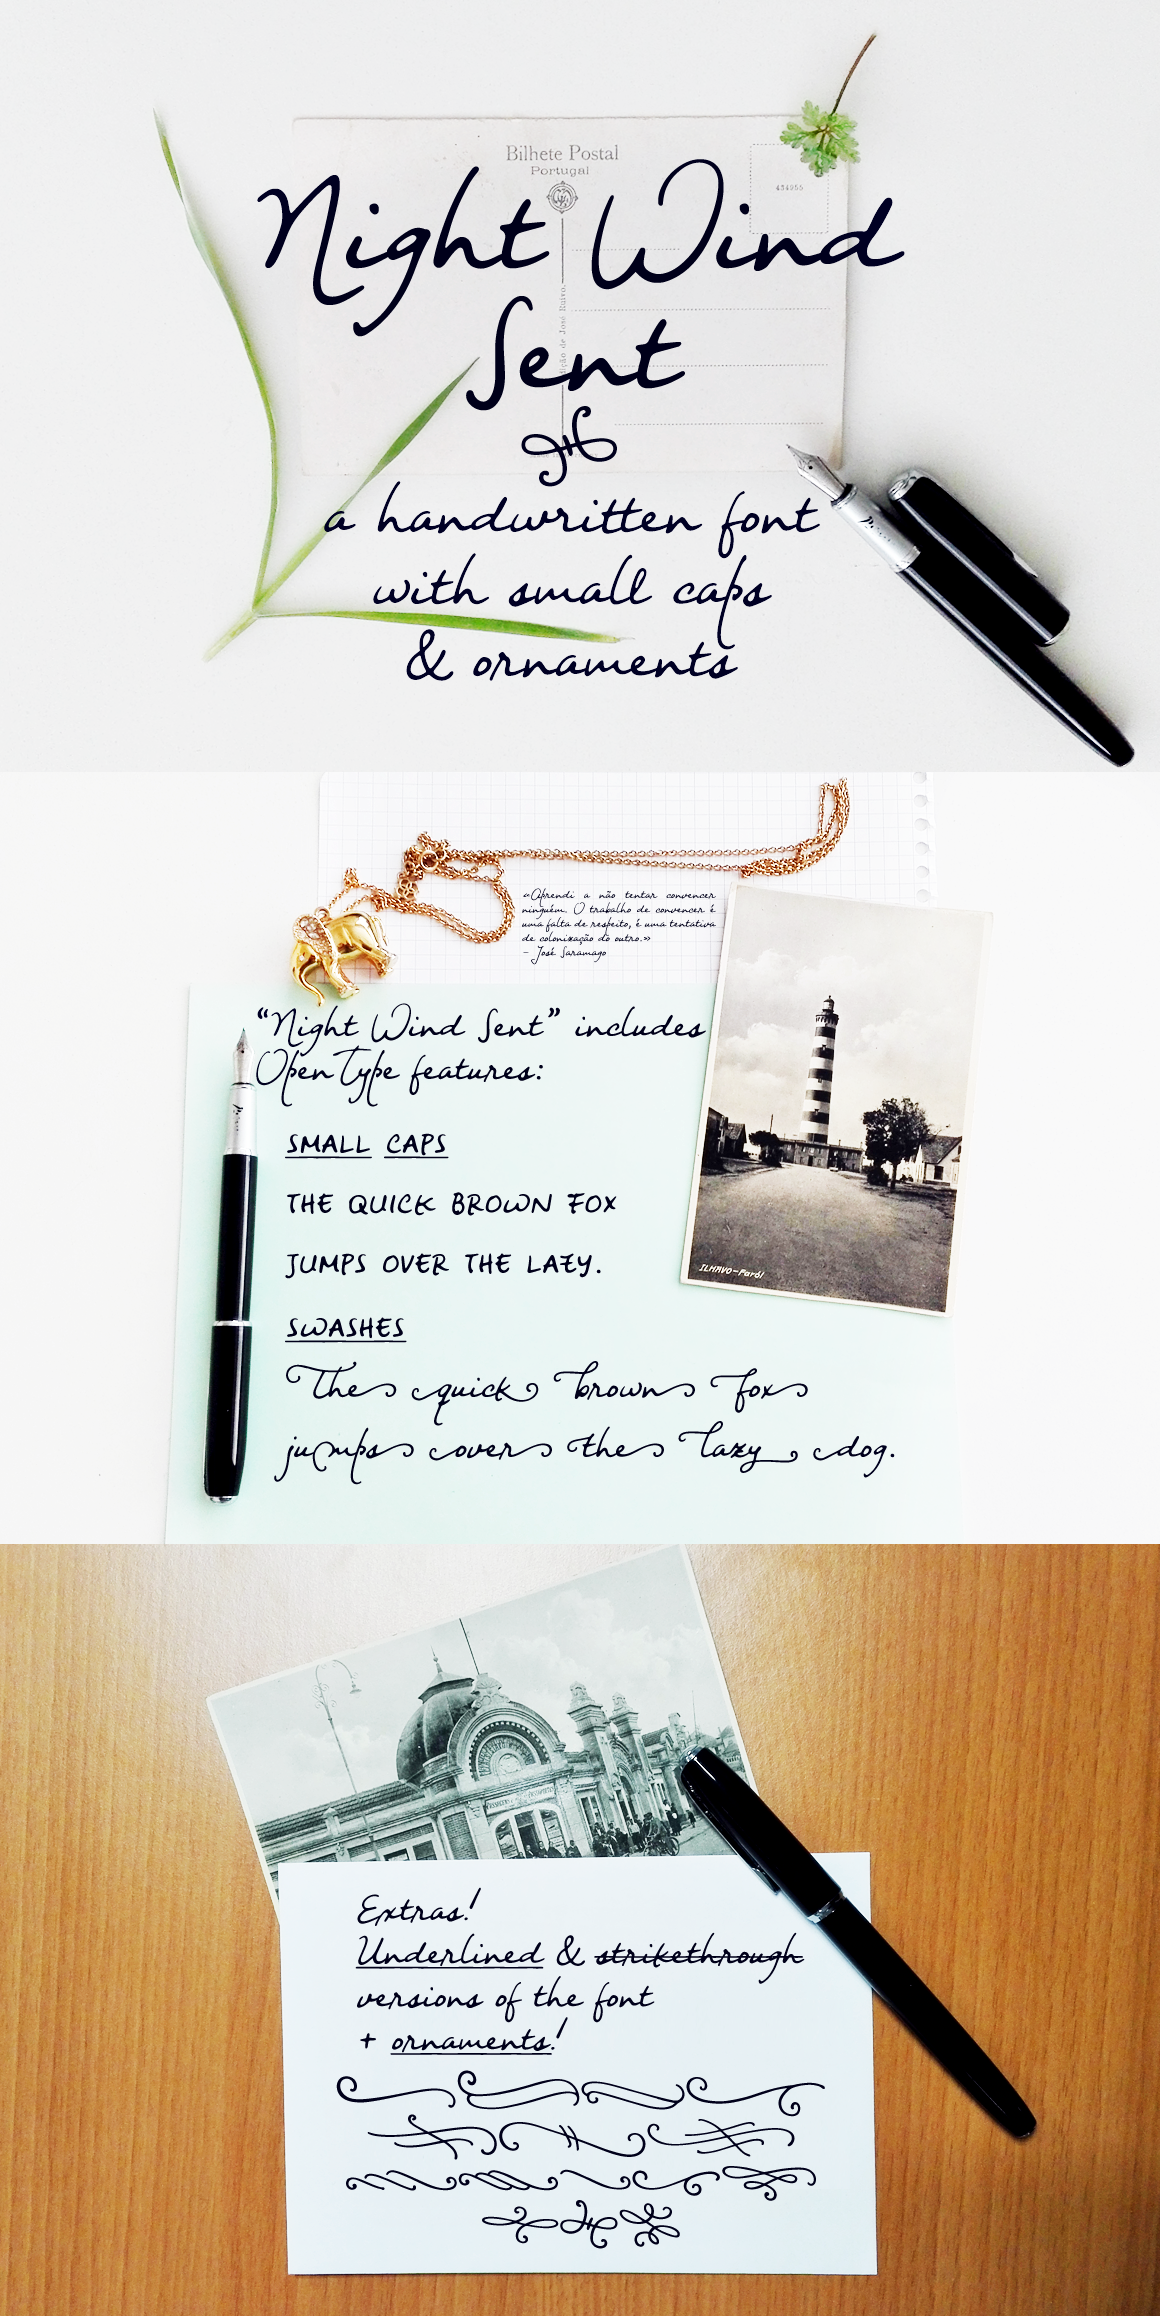 Bilhete Postal
Portugal
434955
Night Wind
Sent
a handwritten font
with small caps
& ornaments
«Aprendi a não tentar convencer
ninguém. O trabalho de convencer é
uma falta de respeito, é uma tentativa
de colonização do outro.»
- José Saramago
“Night Wind Sent” includes
OpenType features:
SMALL CAPS
THE QUICK BROWN FOX
JUMPS OVER THE LAZY.
SWASHES
The quick brown fox
jumps over the lazy dog.
ILHAVO-Faról
Extras!
Underlined & strikethrough
versions of the font
+ ornaments!